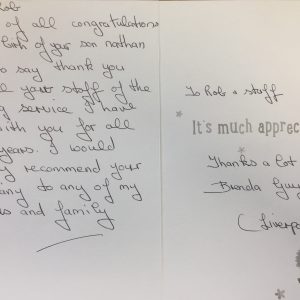 Rob
of all congratulations
birth of your son nathan
to say thank you
your staff of the
service I have
with you for all
years. I would
recommend your
any to any of my
and family
To Rob & staff
It's much apprec
Thanks a lot
Brenda
(Liverpo